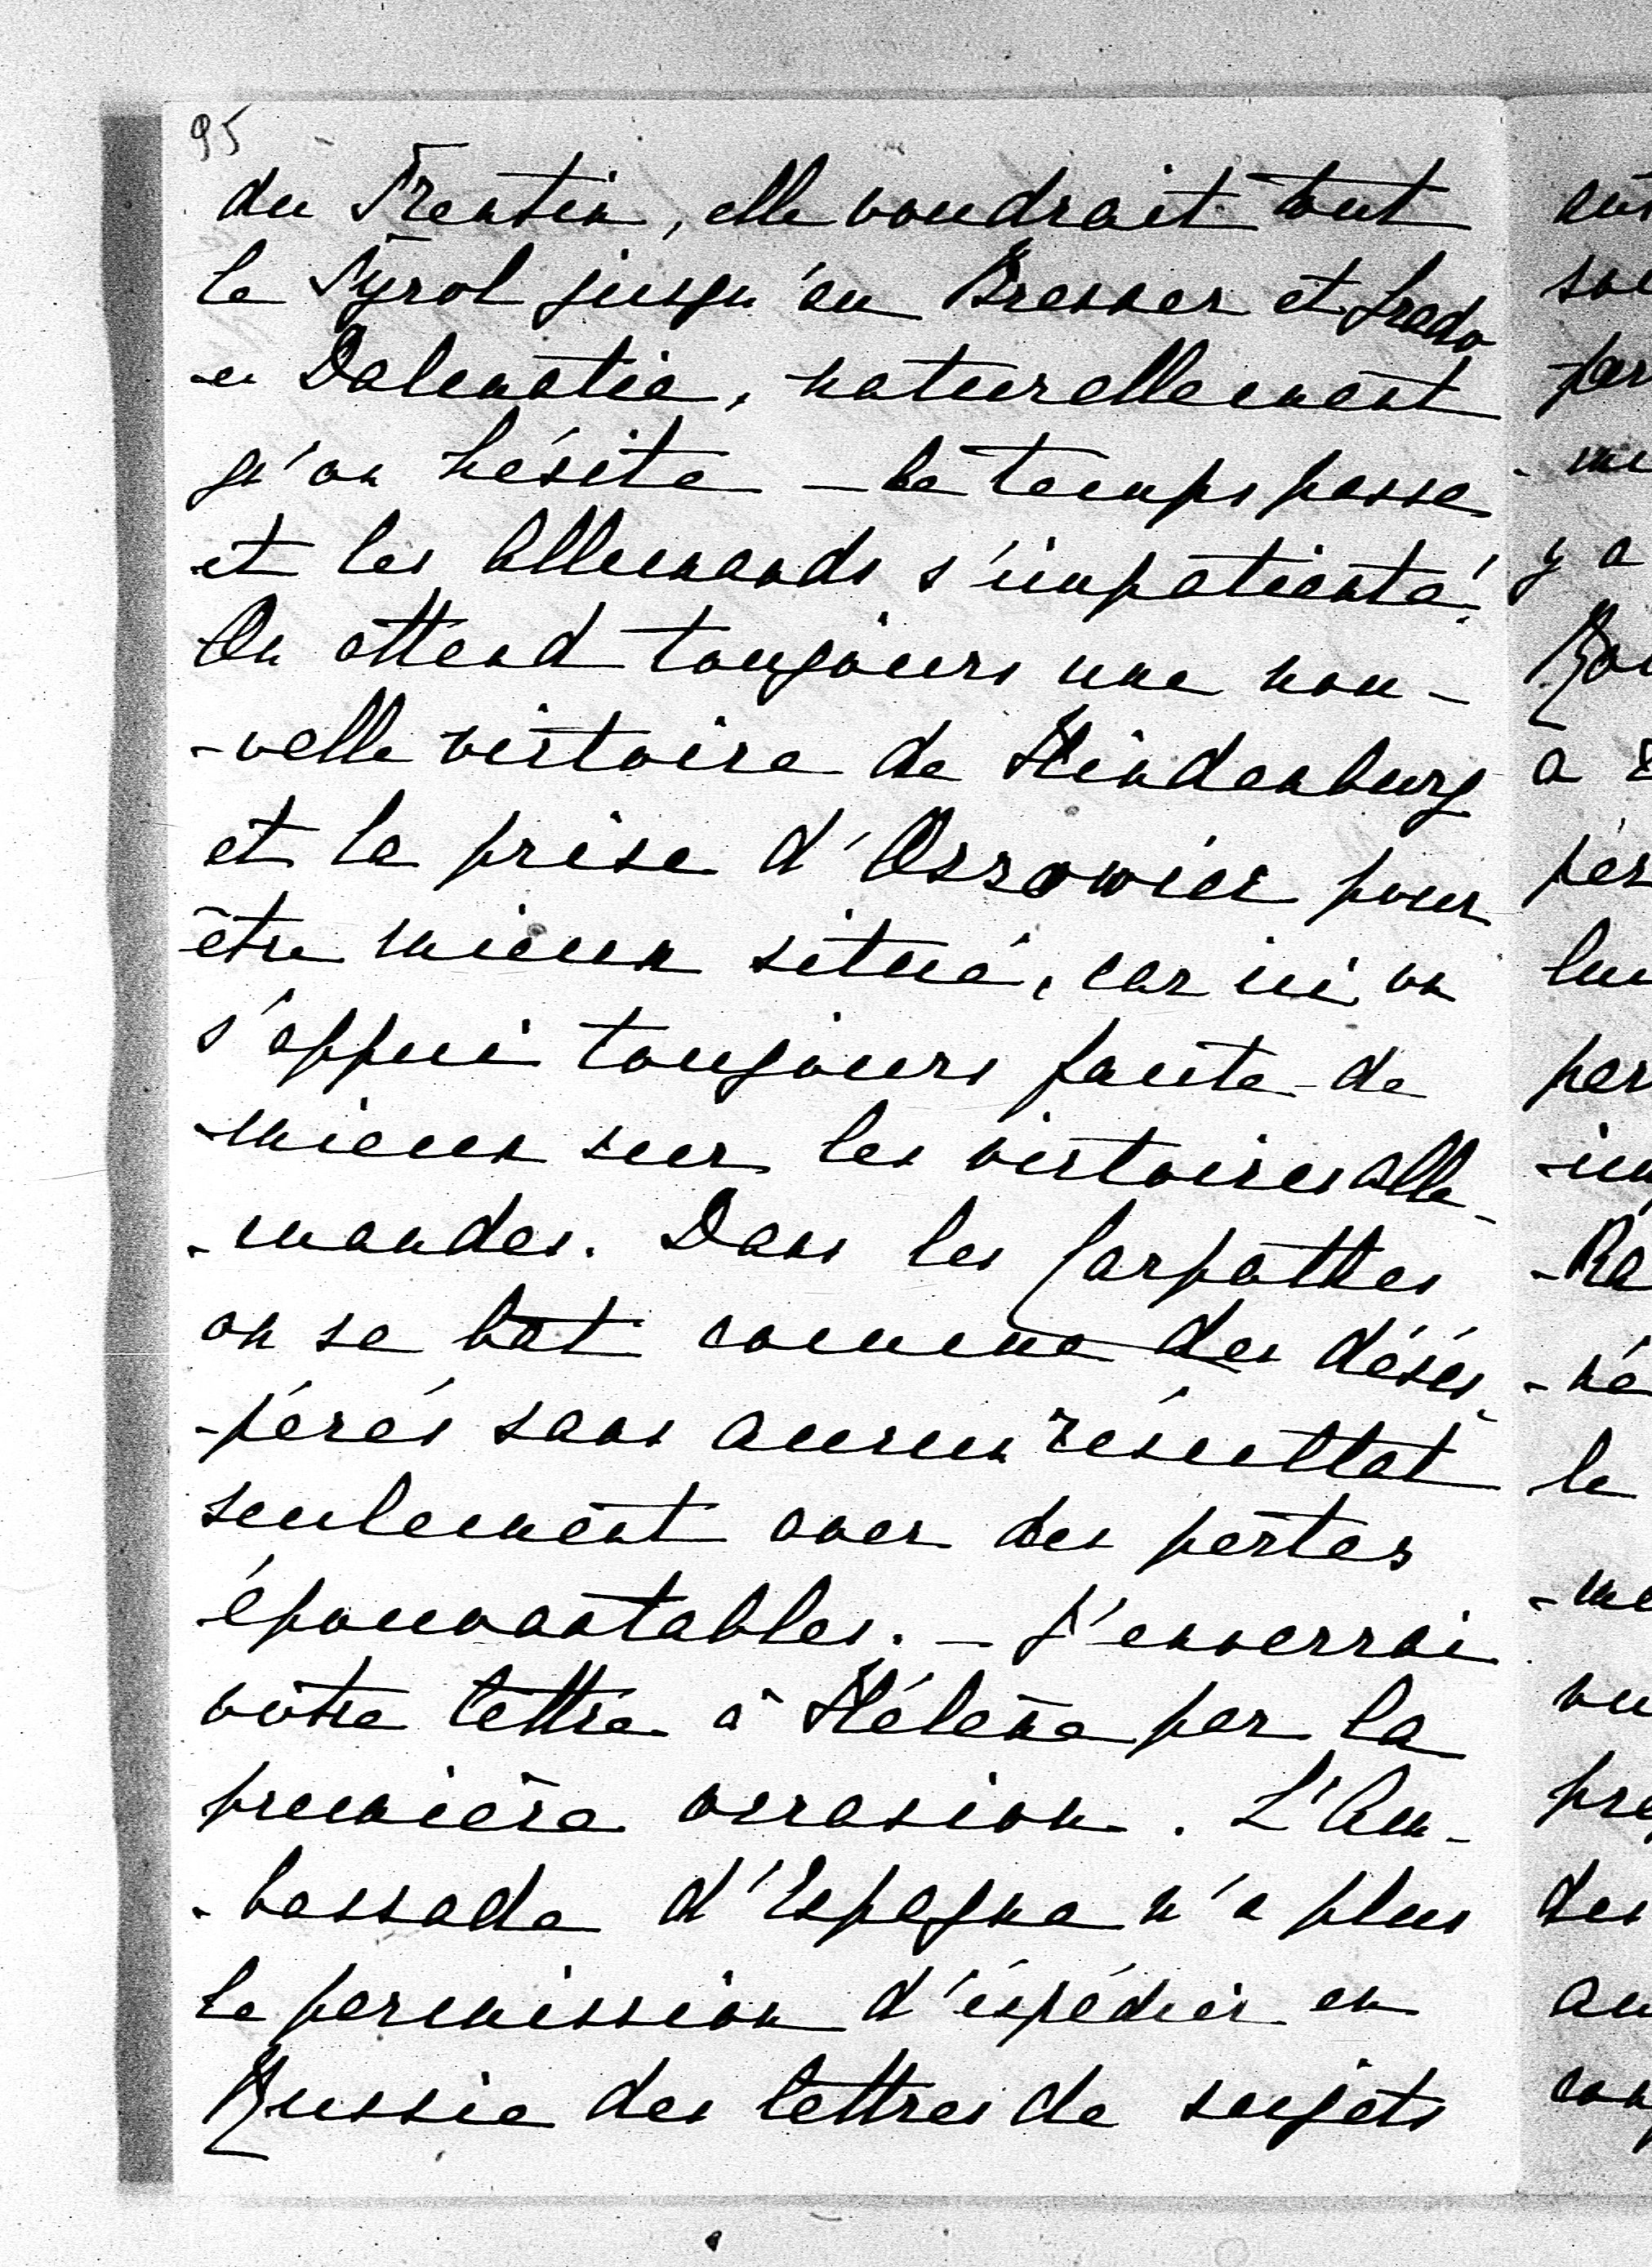 95
du Trentin, elle voudrait tout
le Tyrol jusqu'au Brenner et Grado
en Dalmatie, naturellement
qu'on hésite – le temps passe
et les Allemands s'impatiente!
On attend toujours une nou-
-velle victoire de Hindenburg
et la prise d'Ossowiec pour
être mieux situé, car ici on
s'appui toujours faute de
mieux sur les victoires alle-
-mandes. Dans les Carpathes
on se bat comme des déses-
-pérés sans aucun résultat
seulement avec des pertes
épouvantables. – J'enverrai
votre lettre à Hélène par la
première occasion. L'Am-
-bassade d'Espagne n'a plus
la permission d'éxpédier en
Russie des lettres de sujets